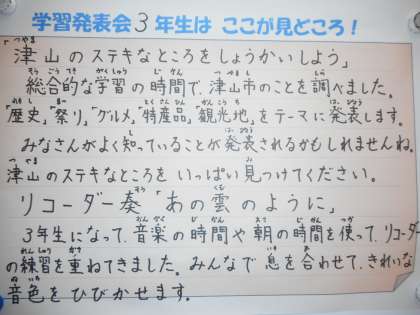 学習発表会3年生は ここが見どころ!
「津山のステキなところをしょうかいしよう」
総合的な学習の時間で、津山市のことを調べました。
「歴史」「祭り」「グルメ」「特産品」「観光地」をテーマに発表します。
みなさんがよく知っていることが発表されるかもしれませんね。
津山のステキなところをいっぱい見つけてください。
リコーダー奏「あの雲のように」
3年生になって、音楽の時間や朝の時間を使って、リコーダー
の練習を重ねてきました。みんなで息を合わせて、きれいな
音色をひびかせます。